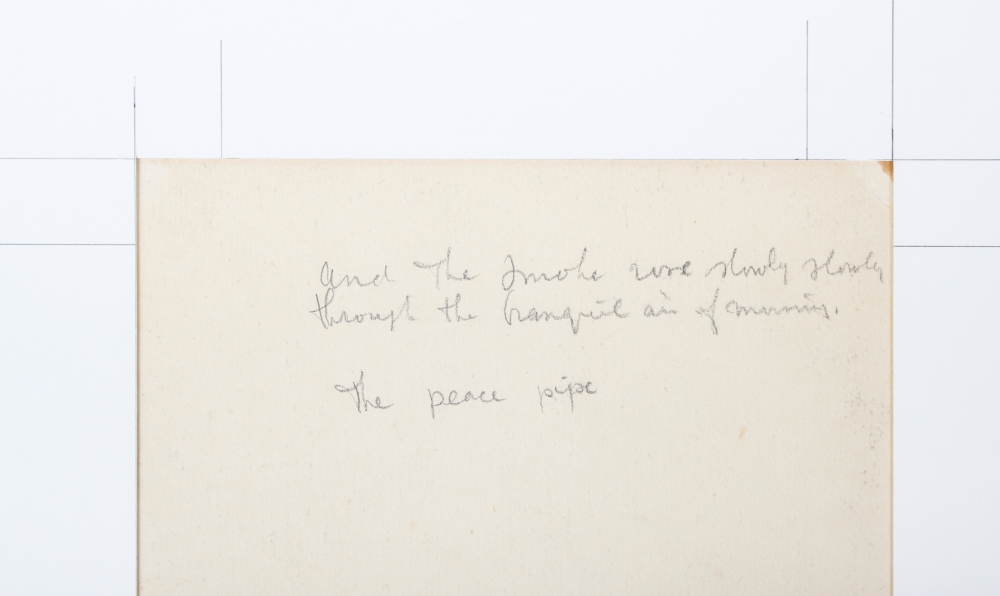 And The Smoke rose slowly slowly
through the tranquil air of morning.
The peace pipe